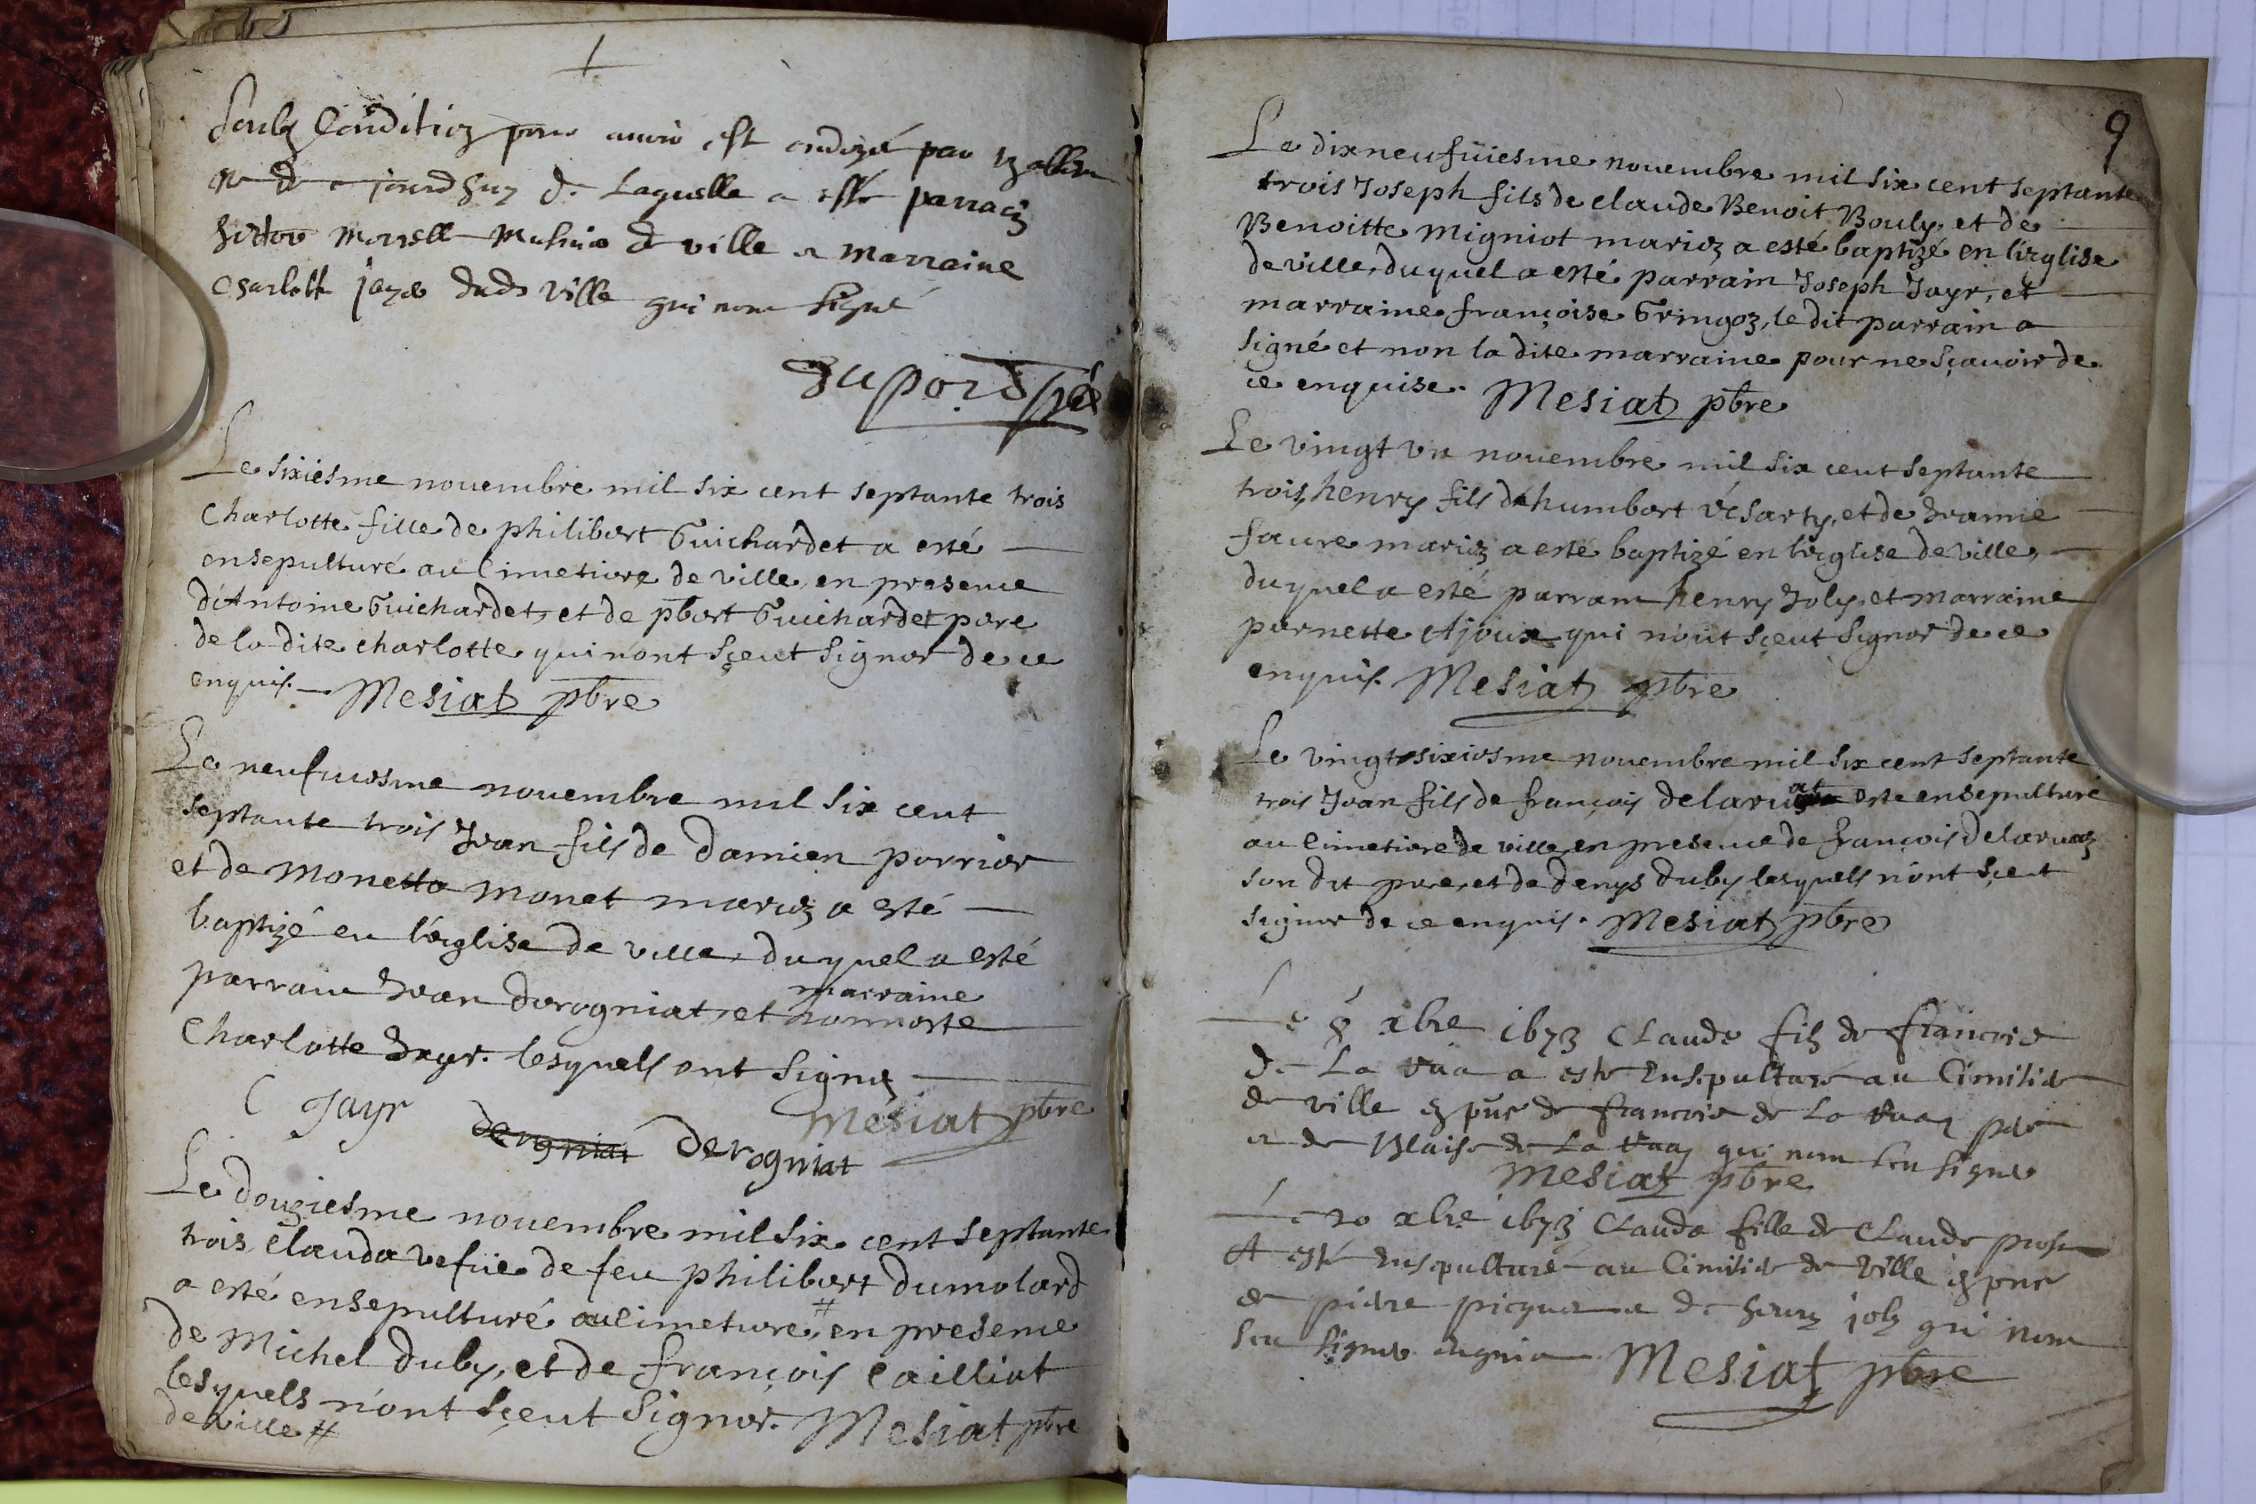 Soubz Condition pour auoir est ondoyé par
jourdhuy De Laquelle a esté parrain
morell de ville et Marraine
Charlotte jayr dudt ville qui nont signé
Duport
Le sixiesme nouembre mil six cent septante trois
Charlotte fille de philibert Guichardet a esté
ensepulturé au Cimetiere de ville, en presence
d'Antoine Guichardet, et de pbert Guichardet pere
de la dite charlotte qui nont sçeut signer de ce
enquis. Mesiat pbre
Le neufuiesme nouembre mil six cent
septante trois Jean fils de Damien perrier
et de Monette Monet mariez a esté
baptizé en l'eglise de ville, duquel a esté
parrain Jean derogniat, et marraine
Charlotte Jayr. lesquels ont signez
C Jayr derogniat Mesiat pbre
Le douziesme nouembre mil six cent septante
trois, Clauda vefue de feu philibert dumolard
a esté ensepulturé au cimetiere, # en presence
de Michel duby, et de françois Cailliat
lesquels n'ont sçeut signer. Mesiat pbre
de ville #
9
Le dixneufuiesme nouembre mil six cent septante
trois Joseph fils de claude Benoit Bouly, et de
Benoitte Migniot mariez a esté baptizé en l'eglise
de ville, duquel a esté parrain Joseph Jayr, et
marraine françoise Gringoz, le dit parrain a
signé et non la dite marraine pour ne sçauoir de
ce enquise. Mesiat pbre
Le vingt vn nouembre mil six cent septante
trois, henry fils de humbert vésarty, et de Jeanne
faure mariez a esté baptizé en l'eglise de ville,
duquel a esté parrain henry Joly, et marraine
pernette Ajoux qui n'ont sçeut signer de ce
enquis. Mesiat pbre
Le vingt sixiesme nouembre mil six cent septante
trois Jean fils de françois delarua esté ensepulturé
au cimetiere de ville, en presence de françois delaruaz
son dit pere, et de denys duby lesquels n'ont sçeut
signer de ce enquis. Mesiat pbre
Le 8 xbre 1673 Claude fils de françois
De La Rua a esté Ensepulturé au Cimitie
de ville en pnce de françois de La Ruaz pere
et de Blaise de La Ruaz qui nont seu signer
Mesiat pbre
Le 20 xbre 1673 Clauda fille de Claude
A esté Ensepulturé au Cimitie de ville en pnce
de pierre picquet et de henry joly qui nont
seu signer enquis Mesiat pbre